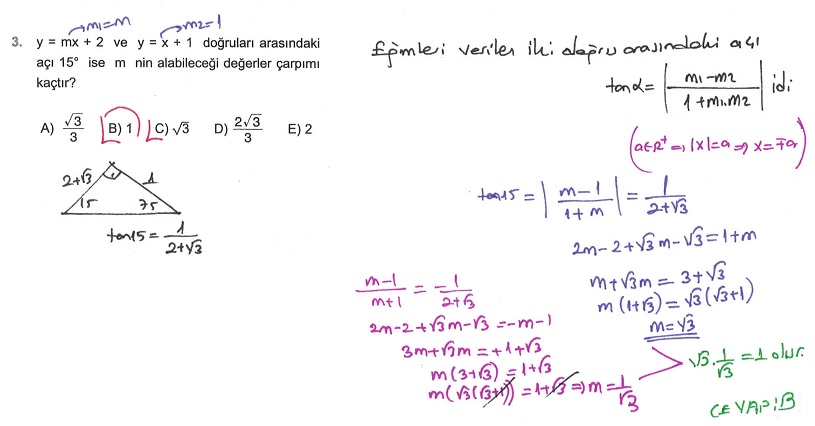 m₁=m
m₂=1
3. y = mx + 2 ve y = x + 1 doğruları arasındaki
açı 15° ise m nin alabileceği değerler çarpımı
kaçtır?
A) √3/3 B) 1 C) √3 D) 2√3/3 E) 2
2+√3 1
15 75
tan15 = 1/(2+√3)
Eğimleri verilen iki doğru arasındaki açı
tanα = |(m₁-m₂)/(1+m₁.m₂)| idi
(a∈R⁺ ⇒ |x|=a ⇒ x=∓a)
tan15 = |(m-1)/(1+m)| = 1/(2+√3)
2m-2+√3m-√3=1+m
m+√3m = 3+√3
m(1+√3) = √3(√3+1)
m=√3
(m-1)/(m+1) = -1/(2+√3)
2m-2+√3m-√3 = -m-1
3m+√3m = +1+√3
m(3+√3) = 1+√3
m(√3(√3+1)) = 1+√3 ⇒ m = 1/√3
√3 · 1/√3 = 1 olur.
CEVAP:B